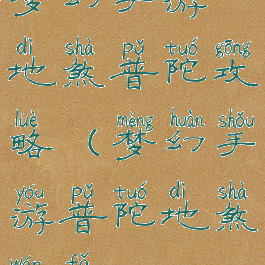 dì shà pǔ tuó gōng
地煞普陀攻
lüè mèng huàn shǒu
略（梦幻手
yóu pǔ tuó dì shà
游普陀地煞